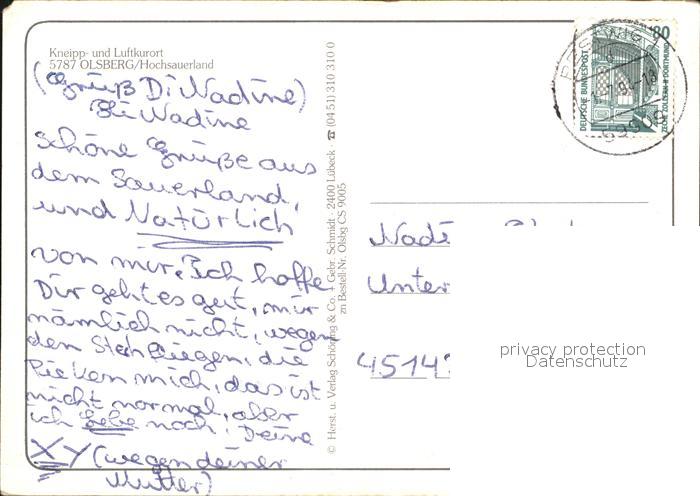 Kneipp- und Luftkurort
5787 OLSBERG/Hochsauerland
(Grüß Di Nadine)
Bli Nadine
Schöne Grüße aus
dem Sauerland,
und Natürlich
von mir. Ich hoffe
Dir geht es gut, mir
nämlich nicht, wegen
den Stechfliegen, die
Picken mich, das ist
nicht normal, aber
ich Lebe noch! Deine
XY (wegen deiner
Mutter)
© Herst. u. Verlag Schöning & Co. + Gebr. Schmidt · 2400 Lübeck · ☎ (04 51) 310 310 0
zu Bestell-Nr. Olsbg CS 9005
80
DEUTSCHE BUNDESPOST
ZECHE ZOLLERN II DORTMUND
59909
Nadi
Unter
4514
privacy protection
Datenschutz